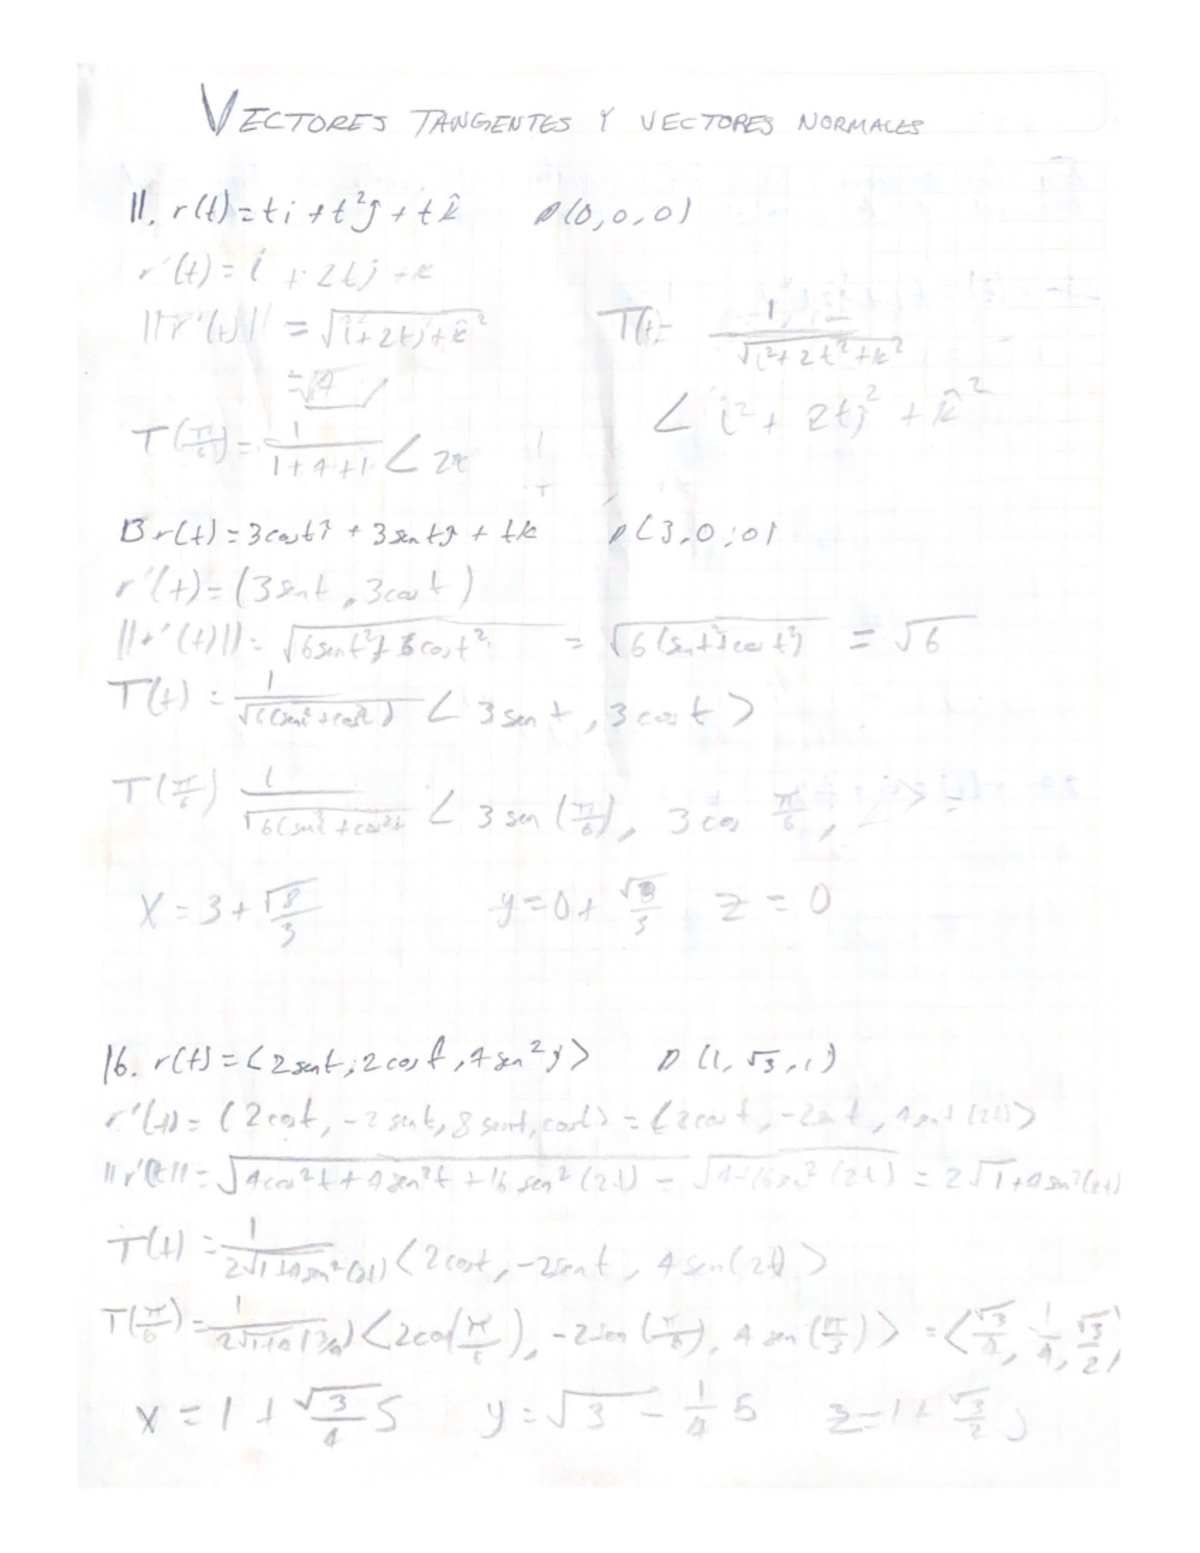 VECTORES TANGENTES Y VECTORES NORMALES
11. r(t)=ti+t²j+tk̂ P(0,0,0)
r'(t)=i+2tj+k
||r'(t)|| = √(i+2tj+k̂²
=√4
T(t)= 1 / √i²+2t²+k²
< i²+2tj²+k̂²
T(π/6)= 1/1+4+1 < 2t
13 r(t)=3costî+3sentj+tk P(3,0,0)
r'(t)=(3sent, 3cost)
||r'(t)||=√6sent²+6cost² = √6(sent²+cost²) = √6
T(t)= 1/√6(sen²+cos²) <3sent, 3cost>
T(π/6) 1/√6(sen²+cos²t <3sen(π/6), 3cos π/6, > =
X=3+√8/3 y=0+√8/3 z=0
16. r(t)=<2sent, 2cost, 4sen²> P(1,√3,1)
r'(t)=(2cost, -2sent, 8sent, cost)=(2cost, -2sent, 4sent(2t)>
||r'(t)||=√4cos²t+4sen²t+16sen²(2t) = √4+16sen²(2t) = 2√1+4sen²(2t)
T(t)= 1/2√1+4sen²(2t) <2cost, -2sent, 4sen(2t)>
T(π/6)= 1/2√1+4(3/4) <2cos(π/6), -2sen(π/6), 4sen(π/3)> = <√3/4, 1/4, √3/2,
x=1+√3/4 S y=√3-1/4 S z=1+√3/2 S